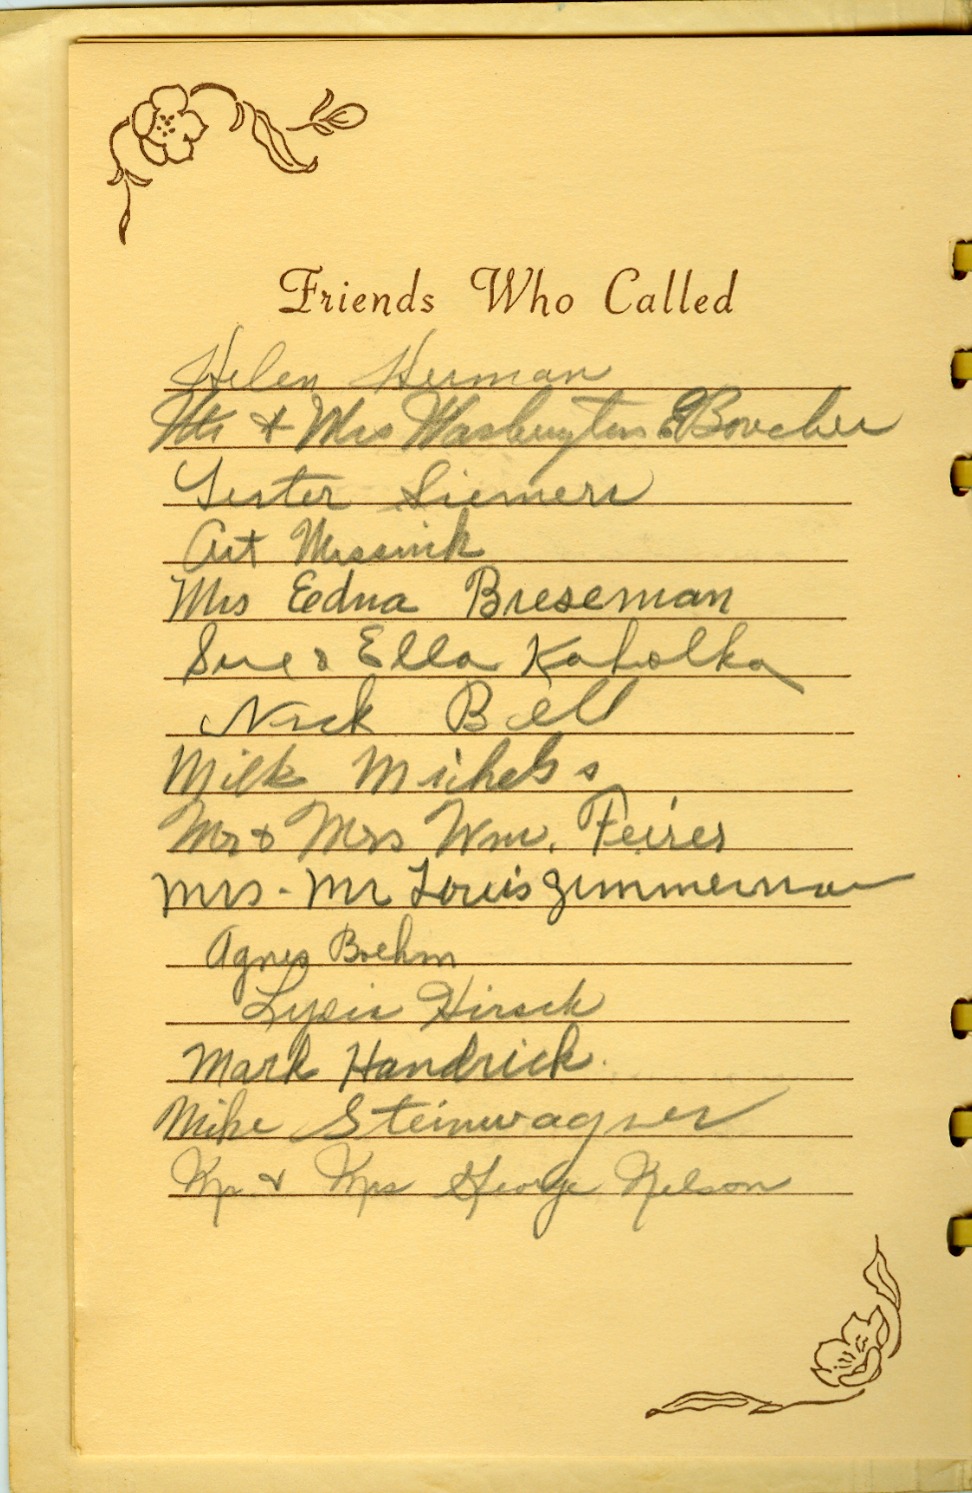 Friends Who Called
Helen Herman
Mr & Mrs Washington E Boucher
Lester Siemers
Art Messink
Mrs Eedna Breseman
Sue & Ella Kaholka
Nick Bell
Milk Michels
Mr & Mrs Wm. Feirer
Mrs - Mr Louis Zimmerman
Agnes Boehm
Hirsch
Mark Handrick.
Mike Steinwagner
Mr. & Mrs George Nelson